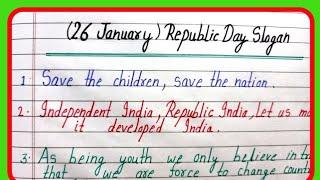 (26 January) Republic Day Slogan
1. Save the children, save the nation.
2. Independent India, Republic India, let us
it developed India.
3. As being youth we only believe in
that, we are force to change